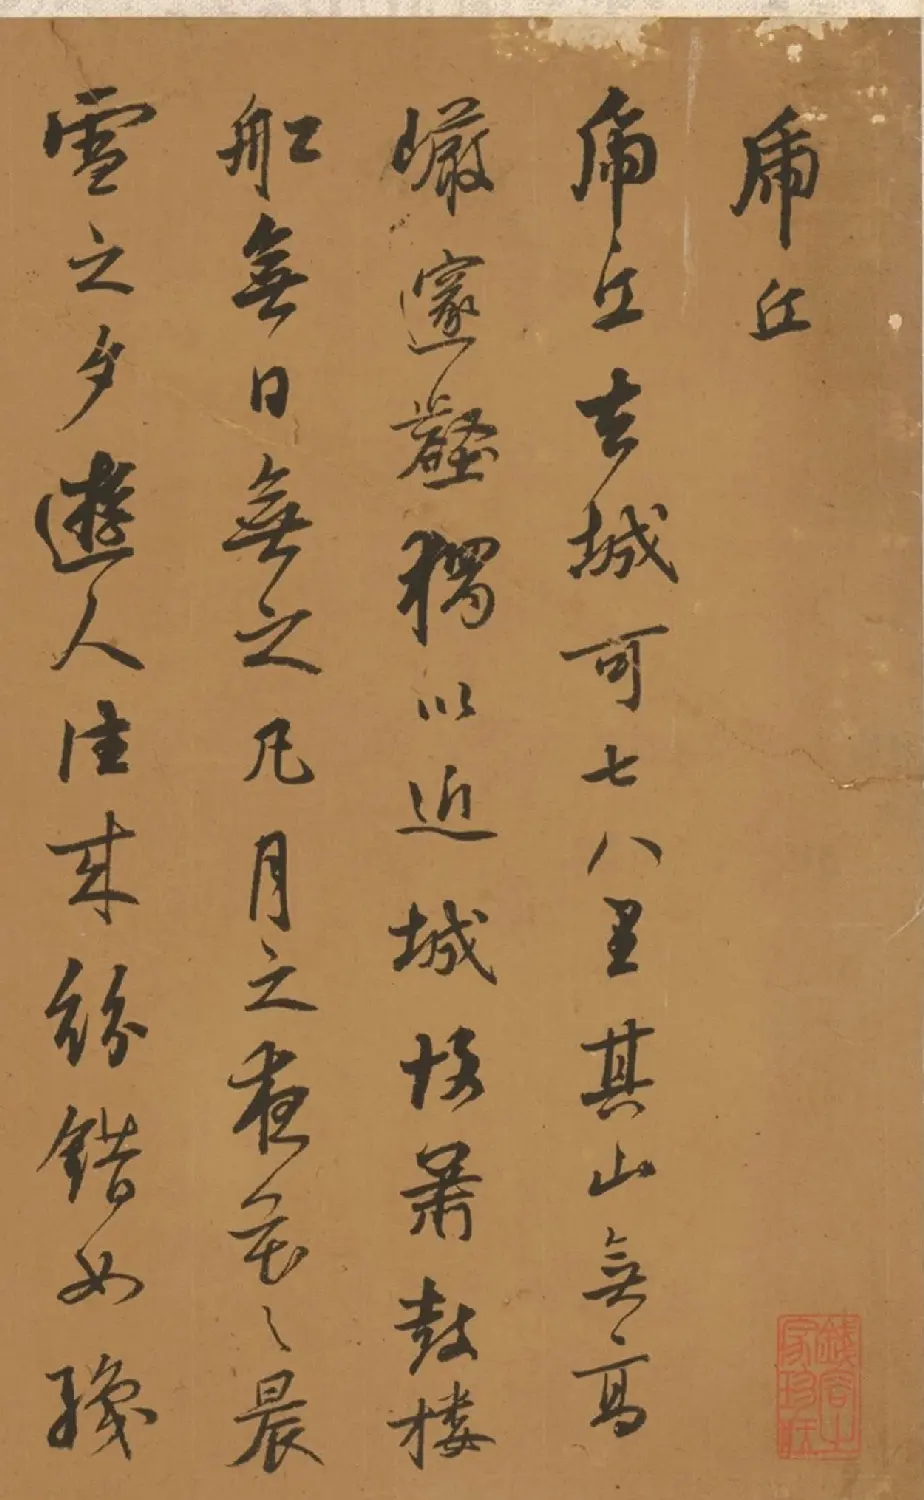 虎丘
虎丘去城可七八里其山無高
巖邃壑獨以近城故簫鼓樓
舡無日無之凡月之夜花之晨
雪之夕遊人往來紛錯如織
錢容之
家珍玩